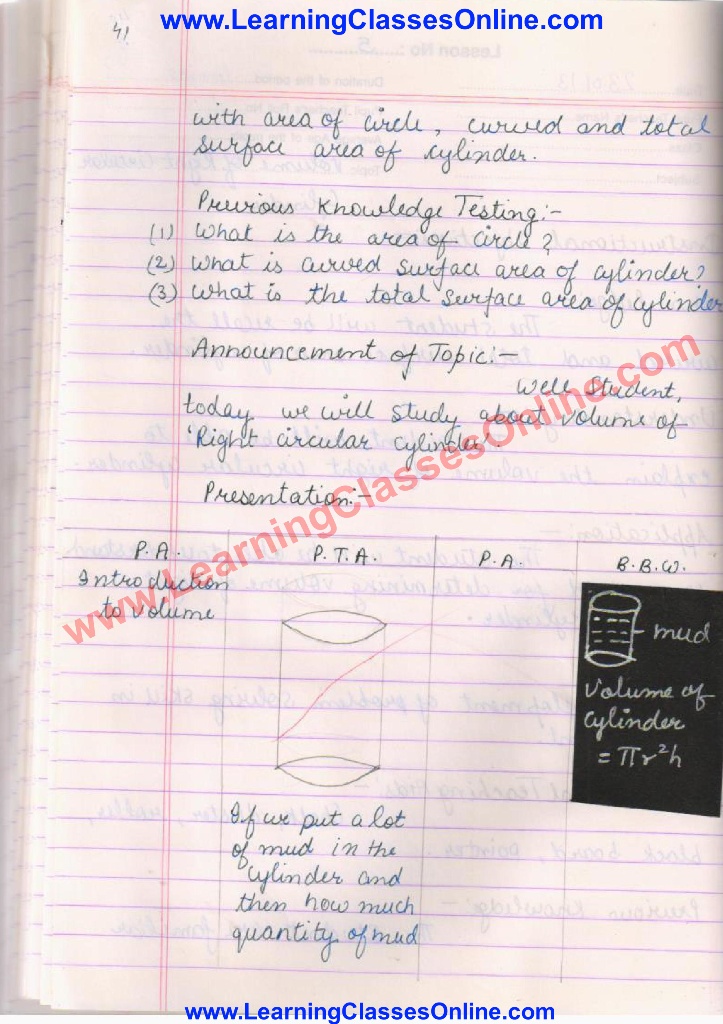 www.LearningClassesOnline.com
41
with area of circle, curved and total
surface area of cylinder.
Previous Knowledge Testing:-
(1) What is the area of circle?
(2) What is curved surface area of cylinder?
(3) What is the total surface area of cylinder
Announcement of Topic:-
Well Student,
today we will study about volume of
'Right circular cylinder'.
Presentation:-
www.LearningClassesOnline.com
P.A. P.T.A. P.A. B.B.W.
Introduction
to volume
mud
Volume of
cylinder
= πr²h
If we put a lot
of mud in the
cylinder and
then how much
quantity of mud
www.LearningClassesOnline.com